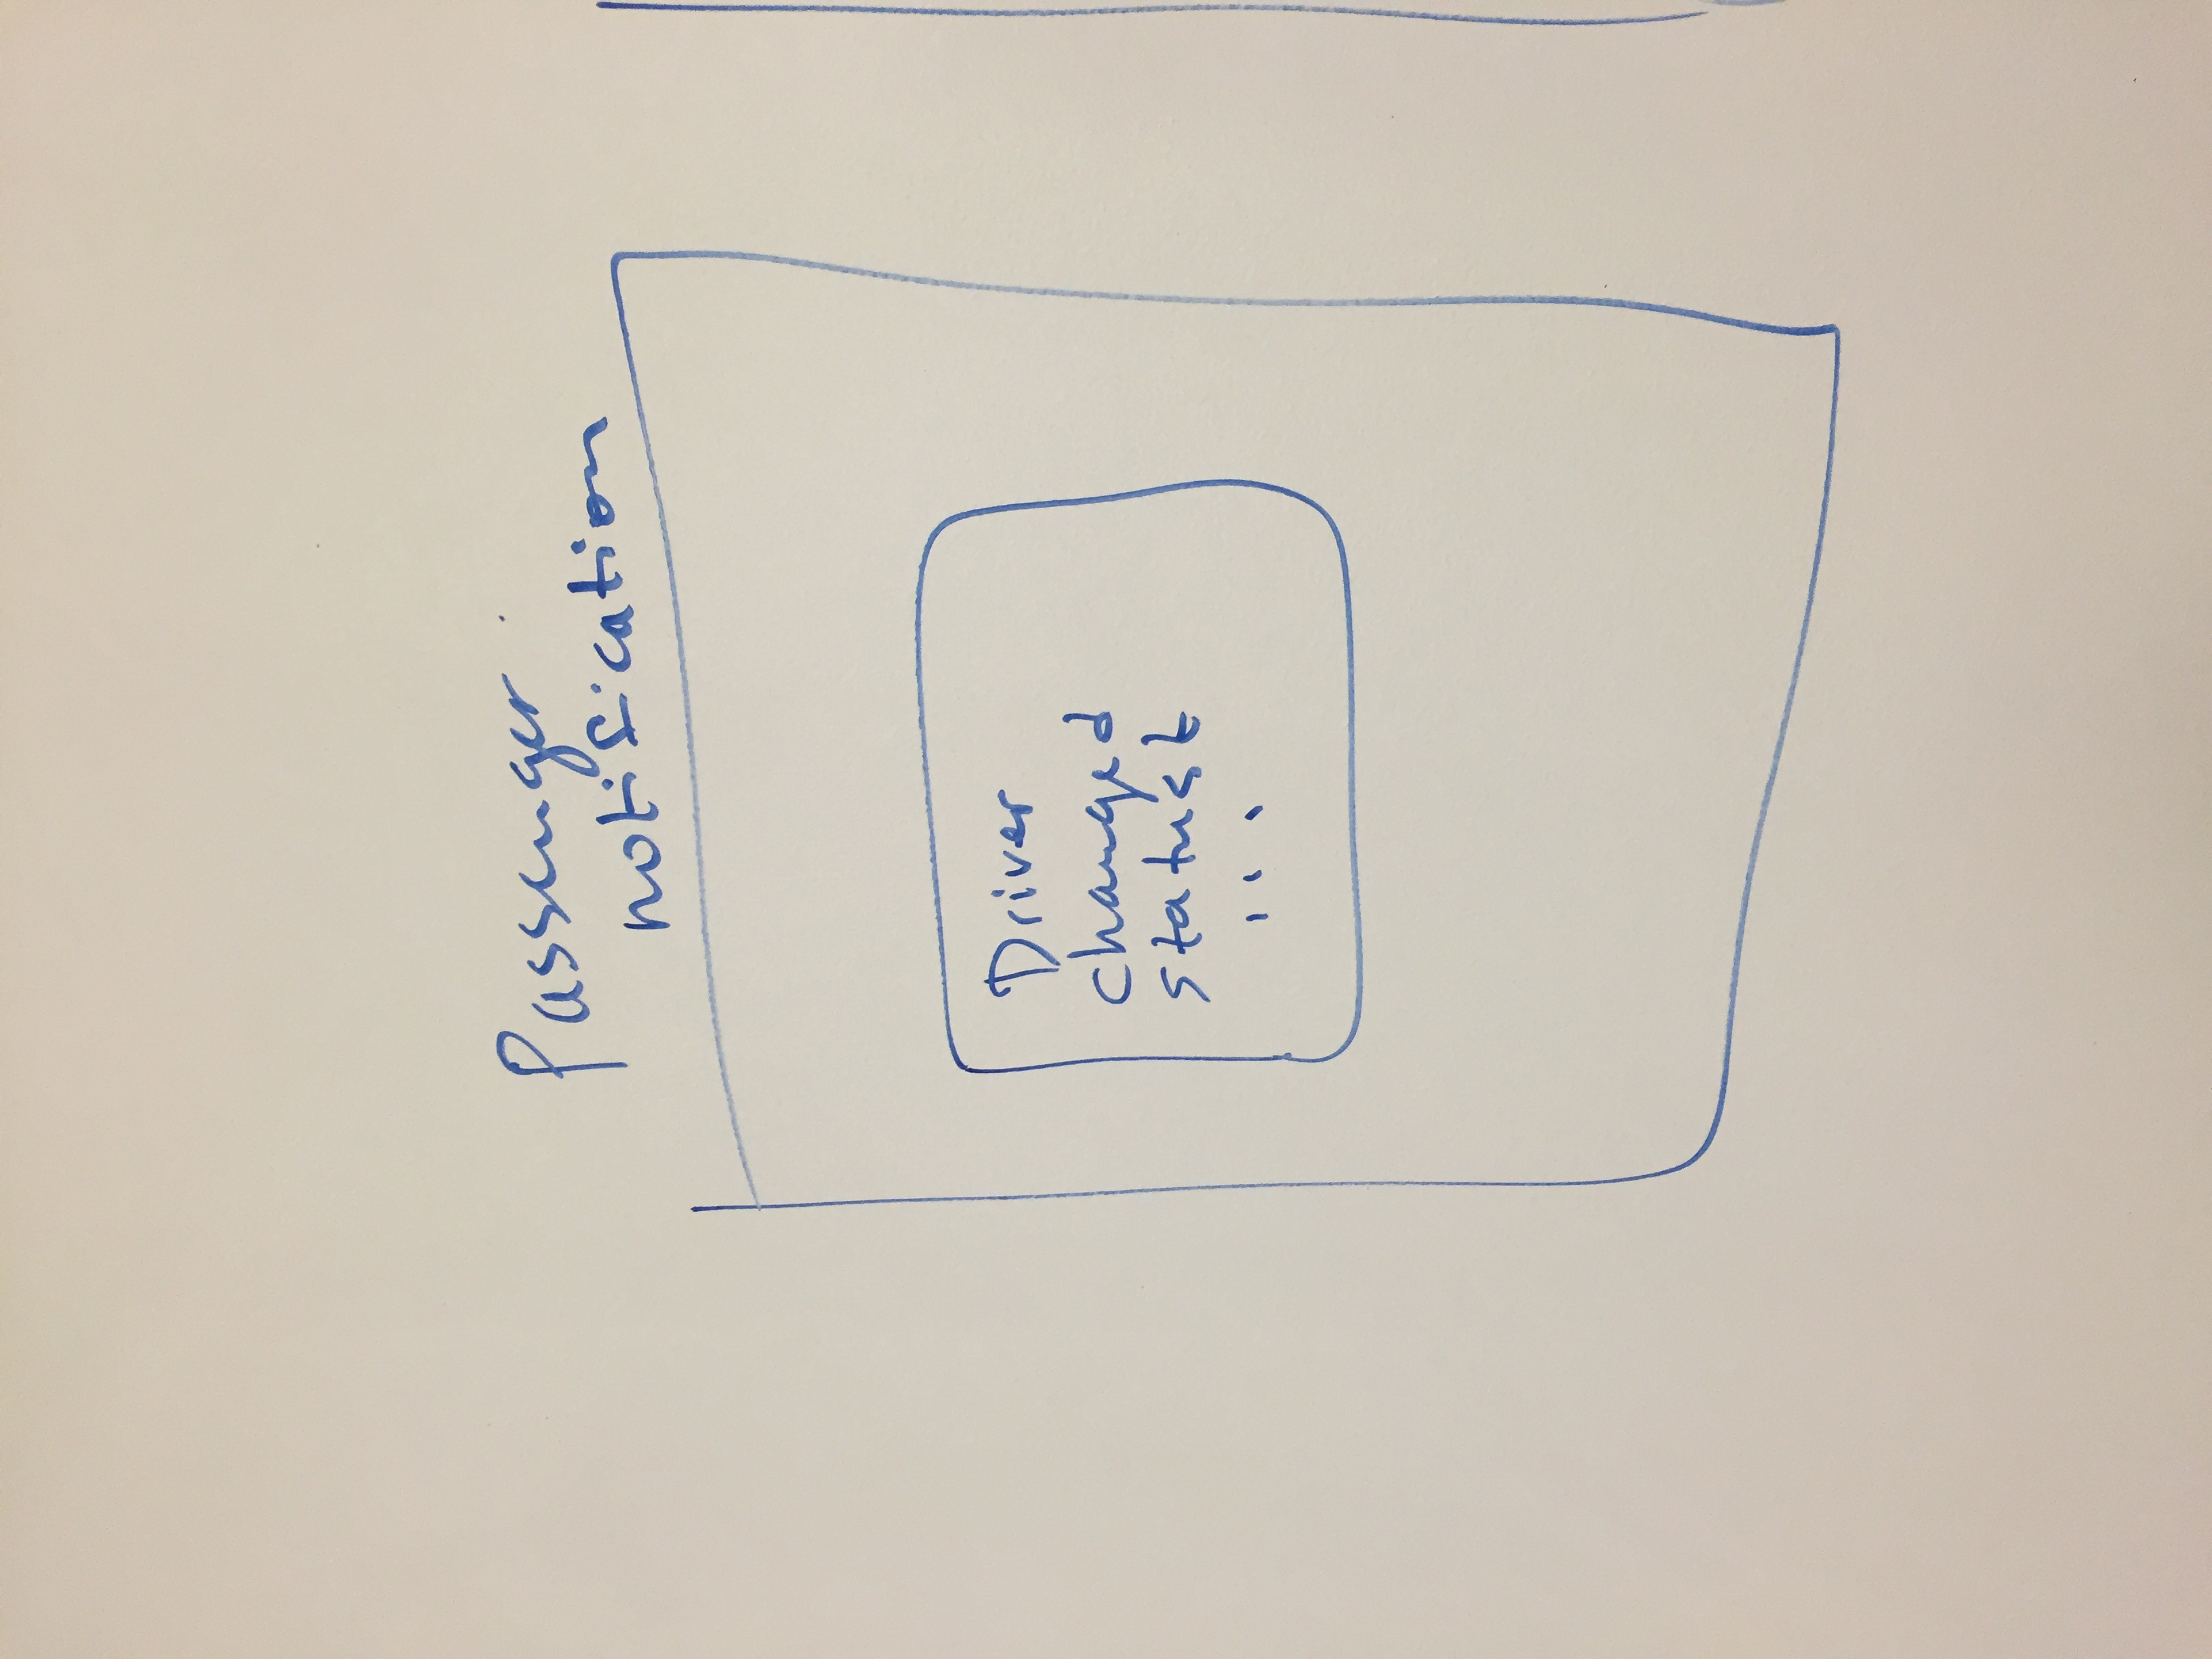 Passenger
notification
Driver
changed
statust
...